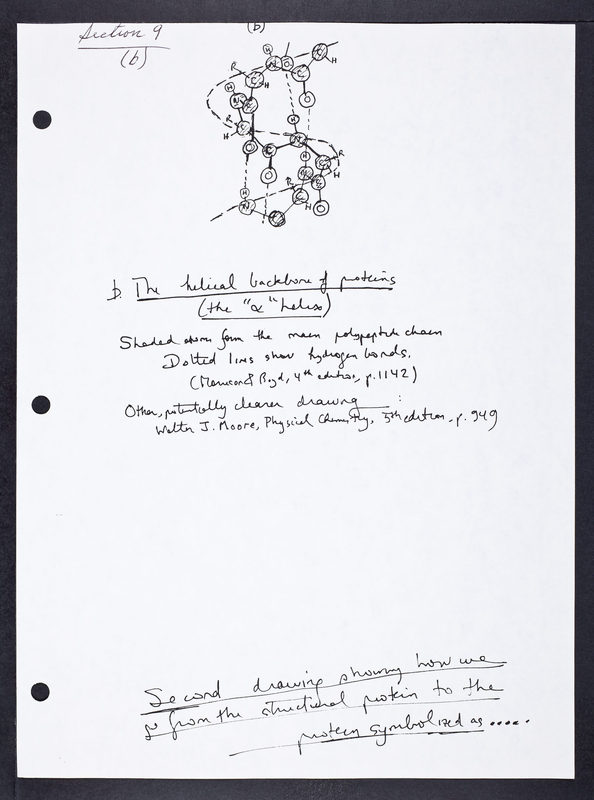 Section 9
(b)
(b)
b. The helical backbone of proteins
(the "α" helix)
Shaded atoms form the main polypeptide chain
Dotted lines show hydrogen bonds.
(Morrison & Boyd, 4th edition, p. 1142)
Other, potentially clearer drawing :
Walter J. Moore, Physical Chemistry, 5th edition, p. 949
Second drawing showing how we
go from the structural protein to the
protein symbolized as .....